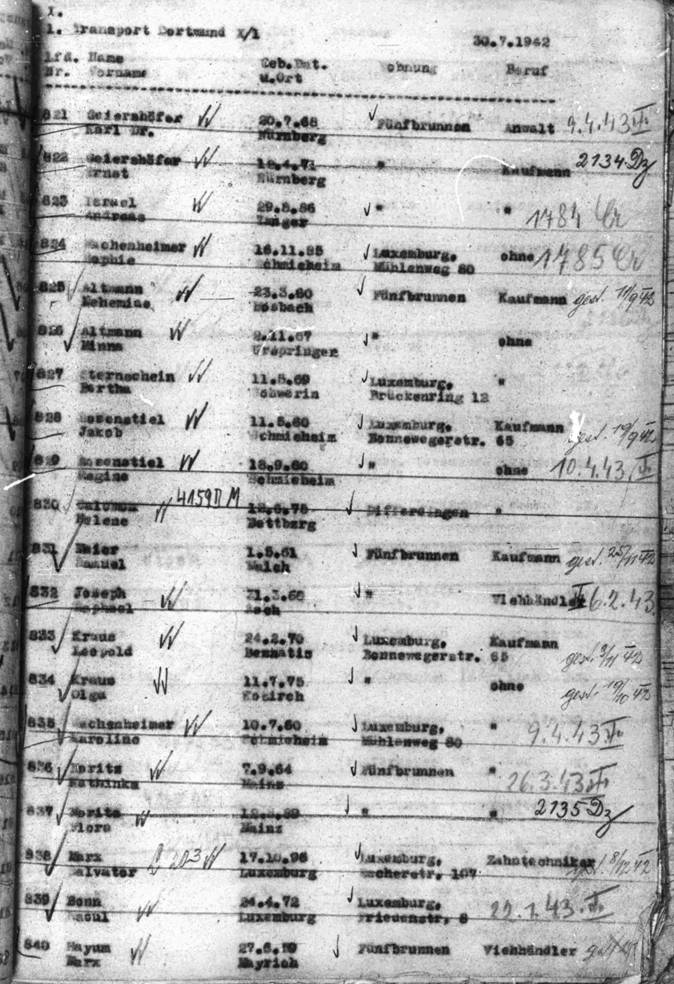 X.
1. Transport Dortmund X/1
30.7.1942
Lfd. Name Geb.Dat. Wohnung Beruf
Nr. Vorname u.Ort
821 Geiershöfer 20.7.68 Fünfbrunnen Anwalt 9.4.43
Karl Dr. Nürnberg
822 Geiershöfer 18.4.71 " Kaufmann 2134 Dz
Ernst Nürnberg
823 Israel 29.8.86 " " 1784
Andreas
824 Wachenheimer 16.11.85 Luxemburg, ohne 1785
Sophie Schmieheim Mühlenweg 80
825 Altmann 23.3.60 Fünfbrunnen Kaufmann gest. 11/9 42
Nehemias Mosbach
826 Altmann 2.11.67 " ohne
Minna Urspringen
827 Sternschein 11.5.69 Luxemburg, "
Bertha Schwerin Brückenring 12
828 Rosenstiel 11.5.60 Luxemburg, Kaufmann gest. 19/9 42
Jakob Schmieheim Bonnewegerstr. 65
829 Rosenstiel 18.9.60 " ohne 10.4.43
Regine Schmieheim
830 Salomon 4159 DM Differdingen "
Helene Bettberg
831 Maier 1.5.61 Fünfbrunnen Kaufmann gest. 25/11 42
Emanuel Malch
832 Joseph 21.3.60 " Viehhändler 6.2.43
Raphael Asch
833 Kraus 24.2.70 Luxemburg, Kaufmann
Leopold Bonnewegerstr. 65 gest. 3/11 42
834 Kraus 11.7.75 " ohne
Olga gest. 19/10 42
835 Wachenheimer 10.7.60 Luxemburg, "
Karoline Schmieheim Mühlenweg 80 9.4.43
836 Moritz 7.9.64 Fünfbrunnen "
Kathinka Mainz 26.3.43
837 Moritz " " 2135 Dz
Flora Mainz
838 Marx 17.10.96 Luxemburg, Zahntechniker 8/12 42
Salvator Luxemburg
839 Bonn 24.4.72 Luxemburg, 22.1.43
Raoul Luxemburg Friedenstr. 8
840 Hayum Fünfbrunnen Viehhändler
Marx Mayrich